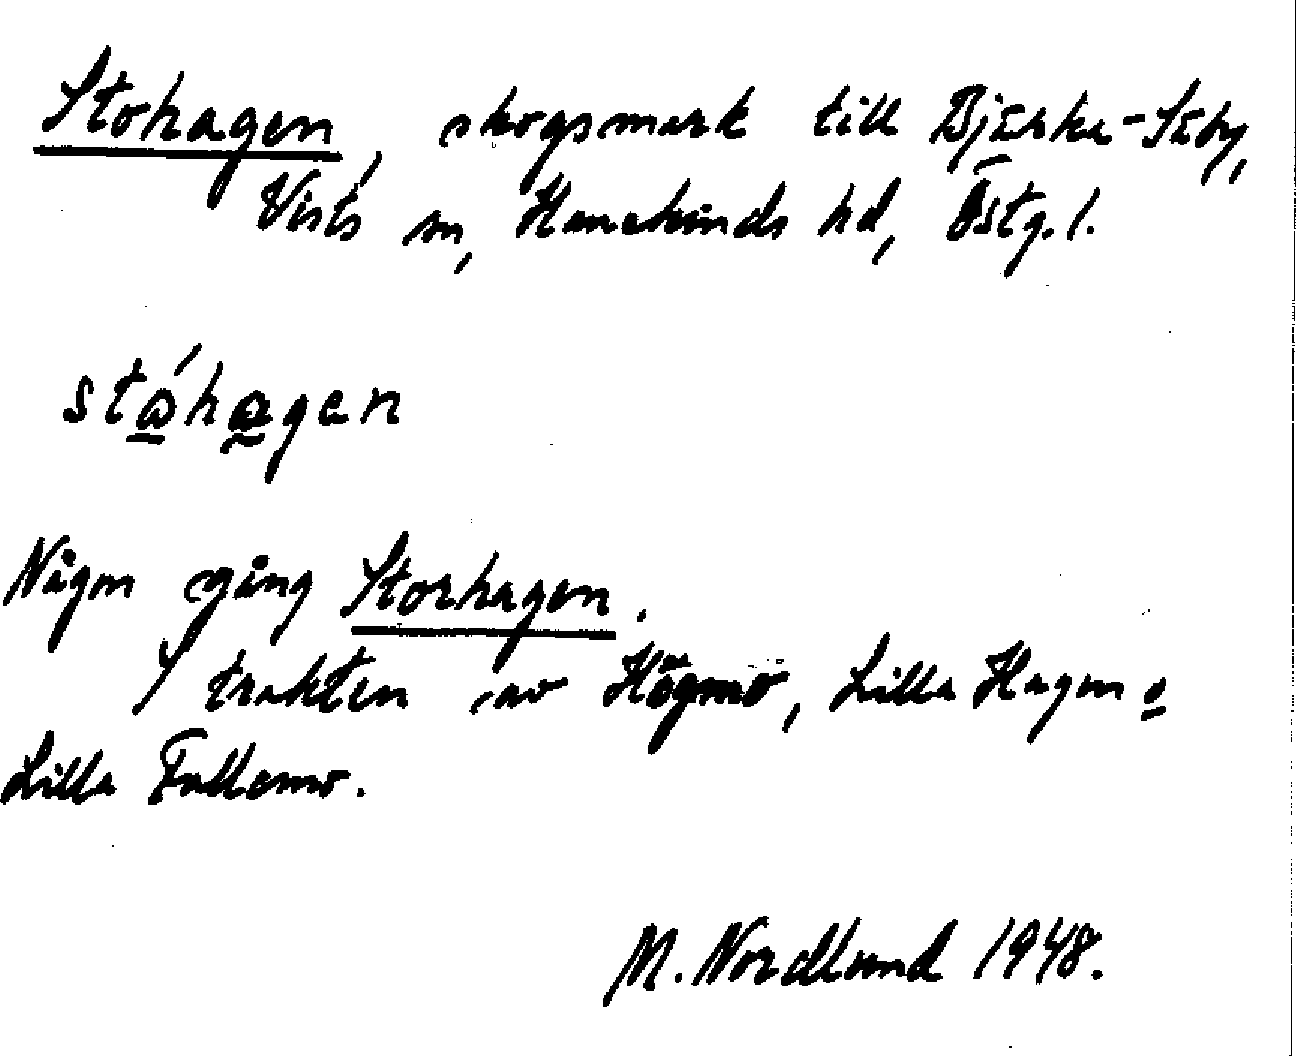 Stohagen, skogsmark till Bjärka-Säby,
Vists sn, Hanekinds hd, Östg. l.
ståhagen
Någon gång Storhagen.
I trakten av Högmo, Lilla Hagen o
Lilla Fallemo.
M. Nordlund 1948.